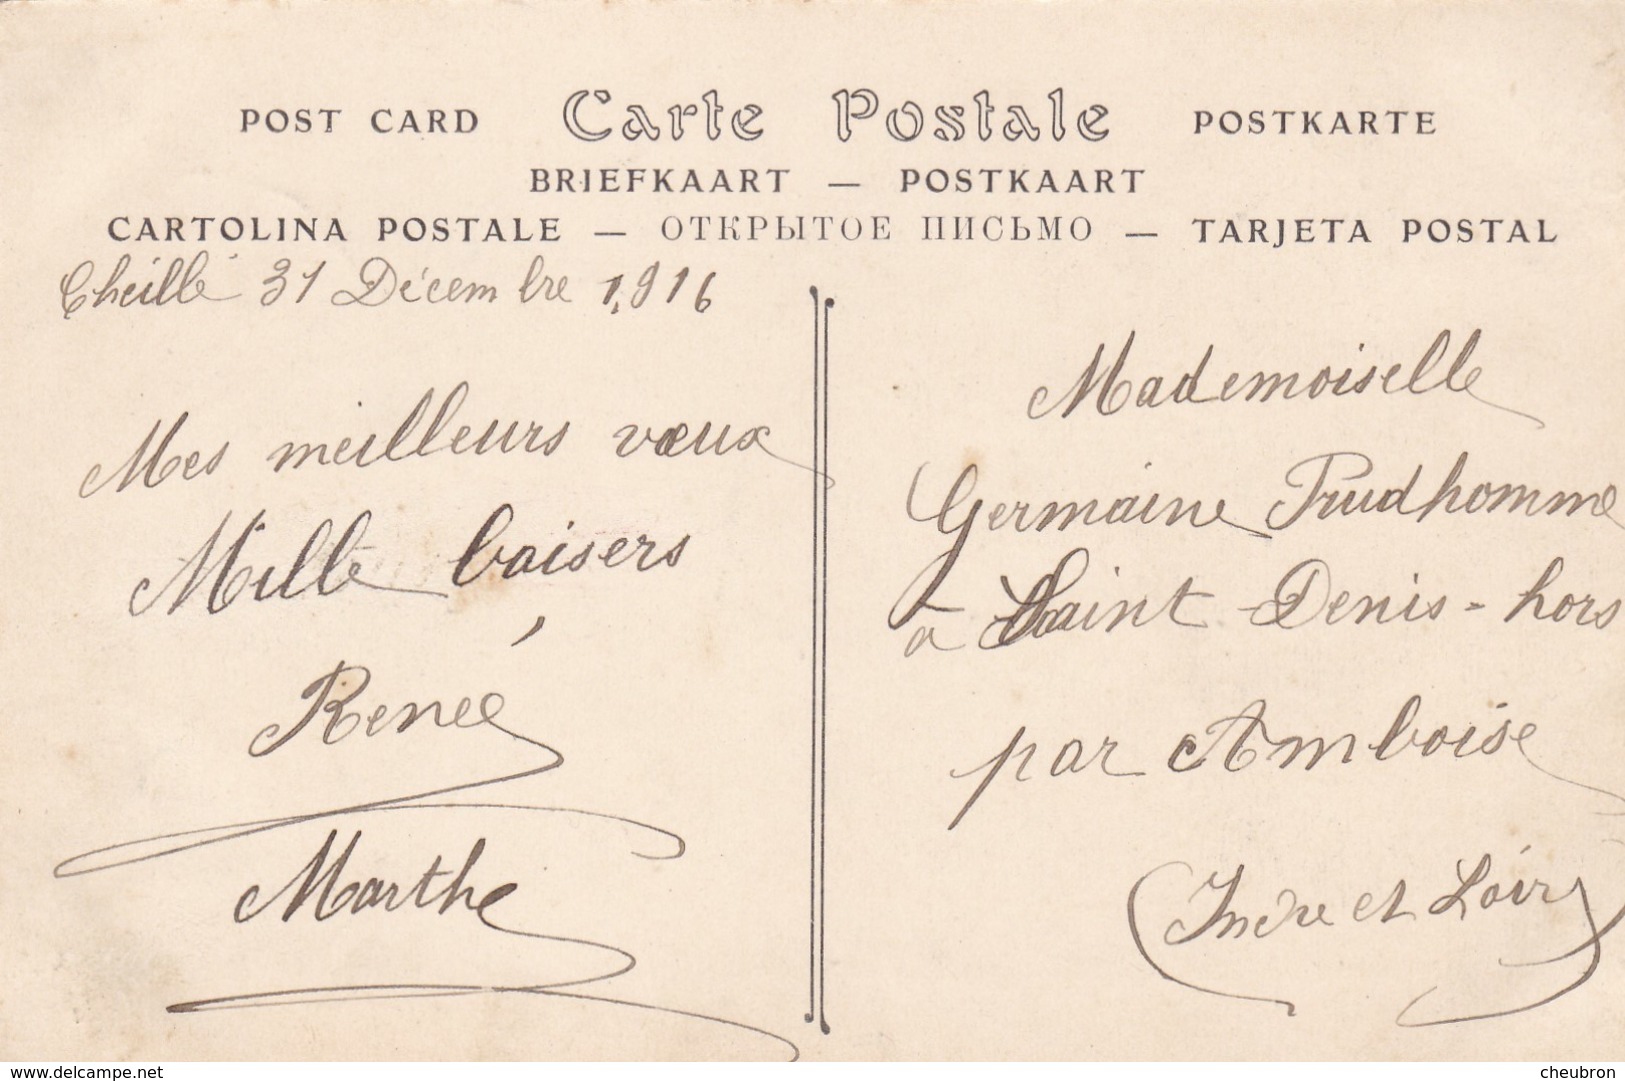 POST CARD Carte Postale POSTKARTE
BRIEFKAART — POSTKAART
CARTOLINA POSTALE — ОТКРЫТОЕ ПИСЬМО — TARJETA POSTAL
Cheillé 31 Décembre 1916
Mes meilleurs vœux
Mille baisers
Renée
Marthe
Mademoiselle
Germaine Prudhomme
à Saint-Denis-hors
par Amboise
(Indre et Loire)
www.delcampe.net
cheubron